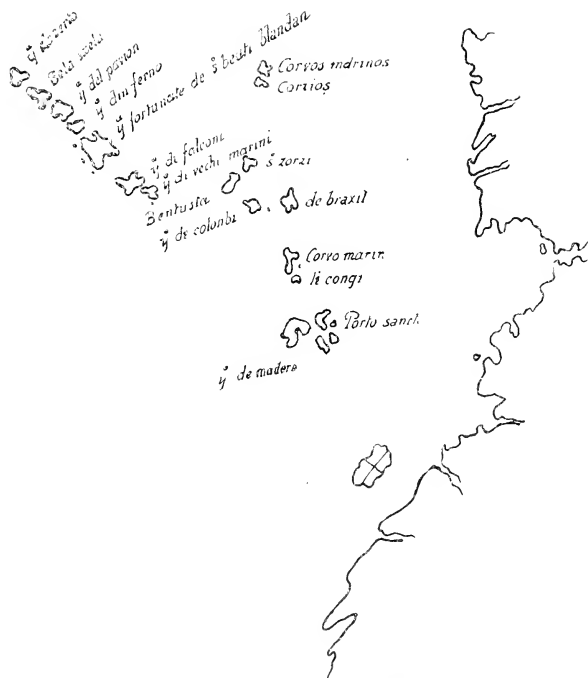 ỹ Rozento
Bela suela
ỹ del pavion
ỹ dinferno
ỹ fortunate de s beati blandan
Corvos mdrinos
Corrios
ỹ di falconi
ỹ di vechi marini
s zorzi
Bentusla
ỹ de colonbi
de braxil
Corvo marin.
li congi
Porto sanct.
ỹ de madera